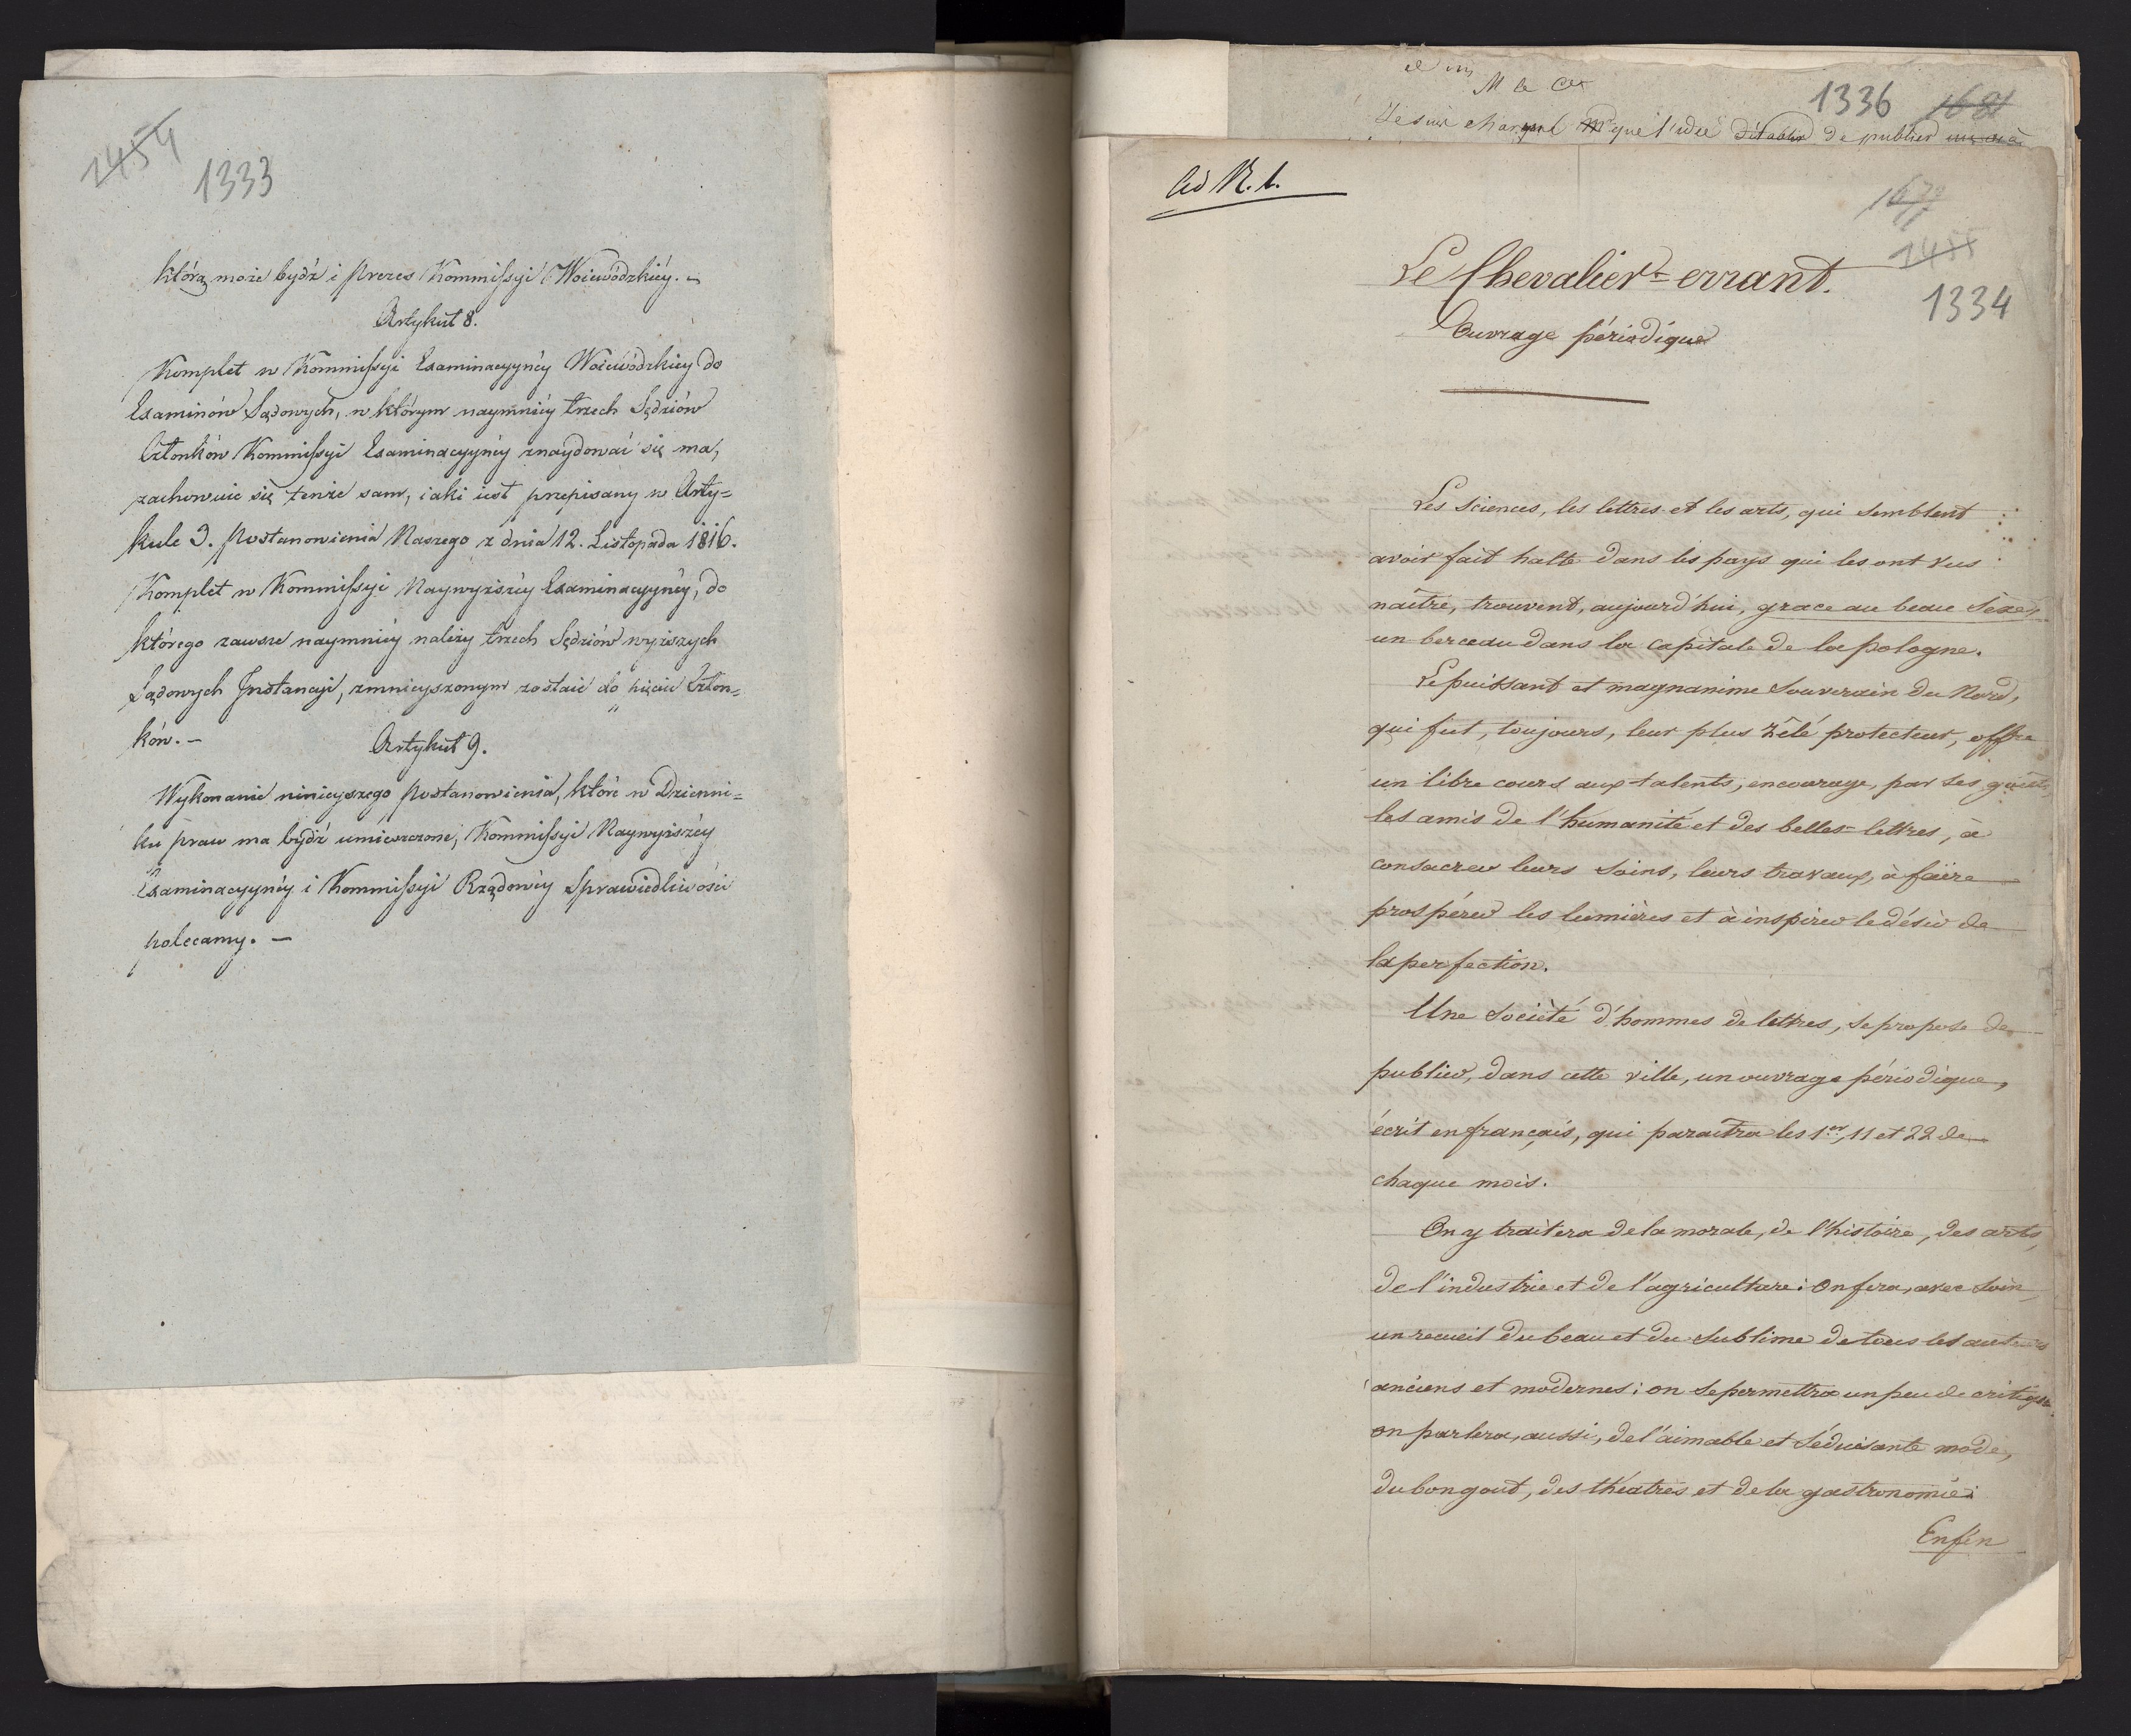 1454
1333
którą może bydź i Prezes Kommissyi Woiewódzkiéy. -
Artykuł 8.
Komplet w Kommissyi Examinacyynéy Woiewódzkiey do
Examinów Sądowych, w którym naymniéy trzech Sędziów
Członków Kommissyi Examinacyynéy znaydować się ma,
zachowuie się tenże sam, iaki iest przepisany w Arty=
kule 3. Postanowienia Naszego z dnia 12. Listopada 1816.
Komplet w Kommissyi Naywyższéy Examinacyynéy, do
którego zawsze naymniéy należy trzech Sędziów wyższych
Sądowych Instancyi, zmnieyszonym zostaie do pięciu Człon=
ków. -
Artykuł 9.
Wykonanie ninieyszego Postanowienia, które w Dzienni=
ku praw ma bydź umieszczone, Kommissyi Naywyższéy
Examinacyynéy i Kommissyi Rządowéy Sprawiedliwości
polecamy. -
M le Cte
1336
Je suis que l'idée d'établir de publier
ad N. 1.
1455
1334
Le Chevalier=errant.
Ouvrage périodique
Les sciences, les lettres et les arts, qui semblent
avoir fait halte dans les pays qui les ont vus
naître, trouvent, aujourd'hui, grace au beau Sexe,
un berceau dans la capitale de la pologne.
Le puissant et magnanime Souverain du Nord,
qui fut, toujours, leur plus zêlé protecteur, offre
un libre cours aux talents, encourage, par ses goûts,
les amis de l'humanité et des belles-lettres, à
consacrer leurs soins, leurs travaux, à faire
prospérer les lumières et à inspirer le désir de
la perfection.
Une Société d'hommes de lettres, se propose de
publier, dans cette ville, un ouvrage périodique,
écrit en français, qui paraîtra les 1er, 11 et 22 de
chaque mois.
On y traitera de la morale, de l'histoire, des arts,
de l'industrie et de l'agriculture: On fera, avec soin,
un recueil du beau et du sublime de tous les auteurs
anciens et modernes: on se permettra un peu de critique
on parlera, aussi, de l'aimable et séduisante mode,
du bon gout, des théatres et de la gastronomie:
Enfin